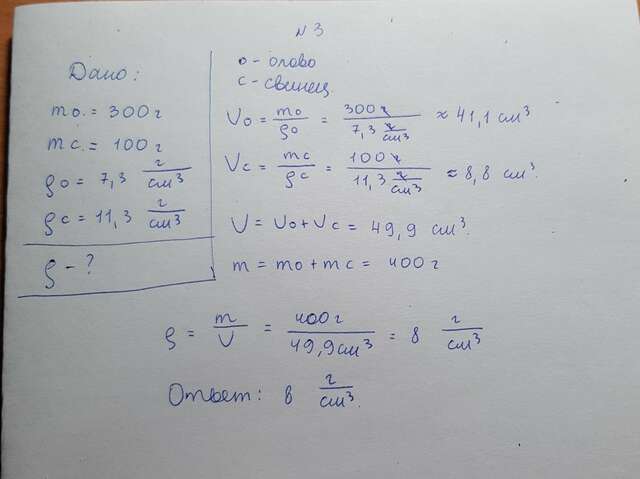 № 3
Дано:
mо. = 300 г
mс. = 100 г
ρо = 7,3 г/см³
ρс = 11,3 г/см³
ρ - ?
о - олово
с - свинец
Vо = mо/ρо = 300 г/7,3 г/см³ ≈ 41,1 см³
Vс = mс/ρс = 100 г/11,3 г/см³ ≈ 8,8 см³.
V = Vо + Vс = 49,9 см³.
m = mо + mс = 400 г
ρ = m/V = 400 г/49,9 см³ = 8 г/см³
Ответ: 8 г/см³.